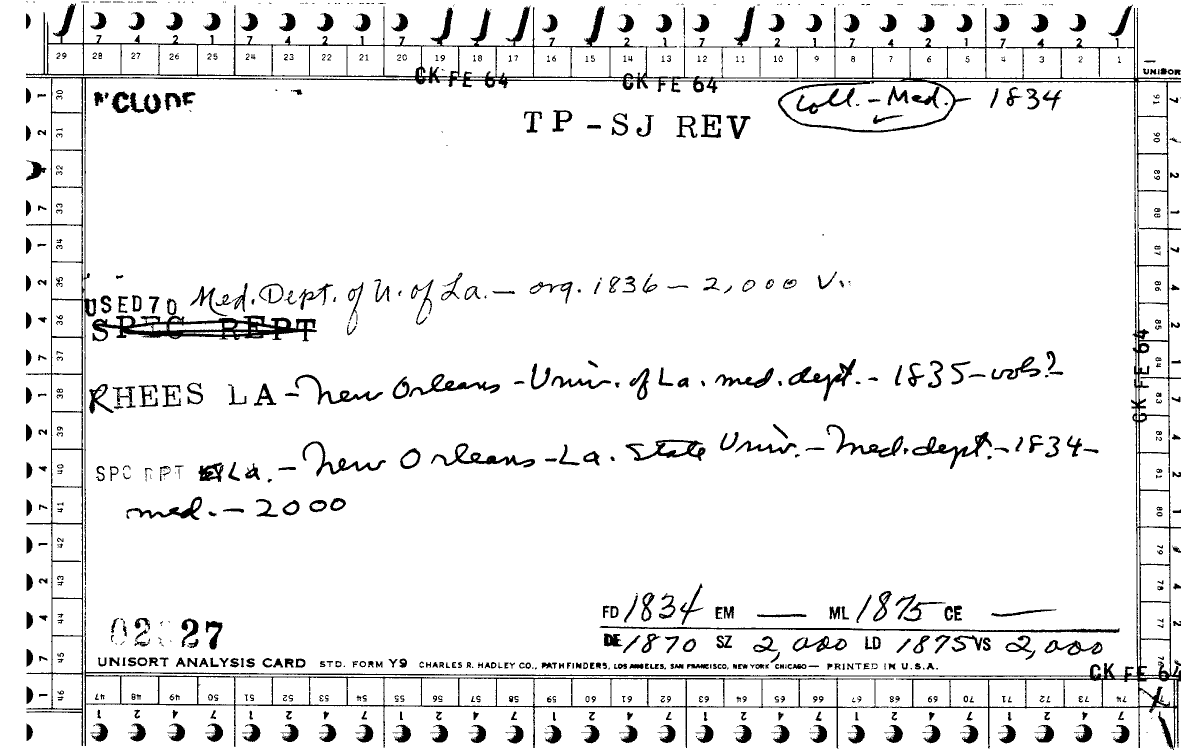 7 4 2 1 7 4 2 1 7 4 2 1 7 4 2 1 7 4 2 1 7 4 2 1 7 4 2 1
29 28 27 26 25 24 23 22 21 20 19 18 17 16 15 14 13 12 11 10 9 8 7 6 5 4 3 2 1
CK FE 64 CK FE 64 UNISOR
Coll. - Med. - 1834
TP-SJ REV
Med. Dept. of U. of La. - org. 1836 - 2,000 V.
USED 70
SPEC REPT
RHEES LA - New Orleans - Univ. of La. med. dept. - 1835 - vols?
SPC RPT La. - New Orleans - La. State Univ. - Med. dept. - 1834 -
med. - 2000
FD 1834 EM — ML 1875 CE —
DE 1870 SZ 2,000 LD 1875 VS 2,000
27
UNISORT ANALYSIS CARD STD. FORM Y9 CHARLES R. HADLEY CO., PATHFINDERS, LOS ANGELES, SAN FRANCISCO, NEW YORK CHICAGO — PRINTED IN U.S.A.
CK FE 64
CK FE 64
30 31 32 33 34 35 36 37 38 39 40 41 42 43 44 45 46
91 90 89 88 87 86 85 84 83 82 81 80 79 78 77
47 48 49 50 51 52 53 54 55 56 57 58 59 60 61 62 63 64 65 66 67 68 69 70 71 72 73 74